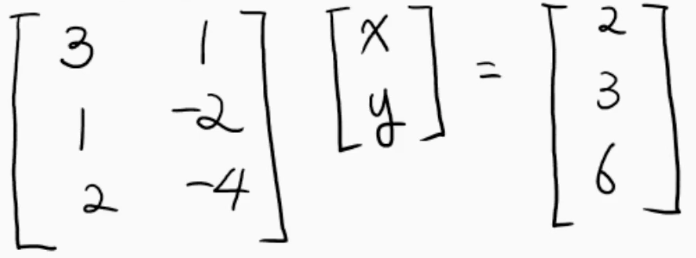 [3 1; 1 -2; 2 -4] [x; y] = [2; 3; 6]